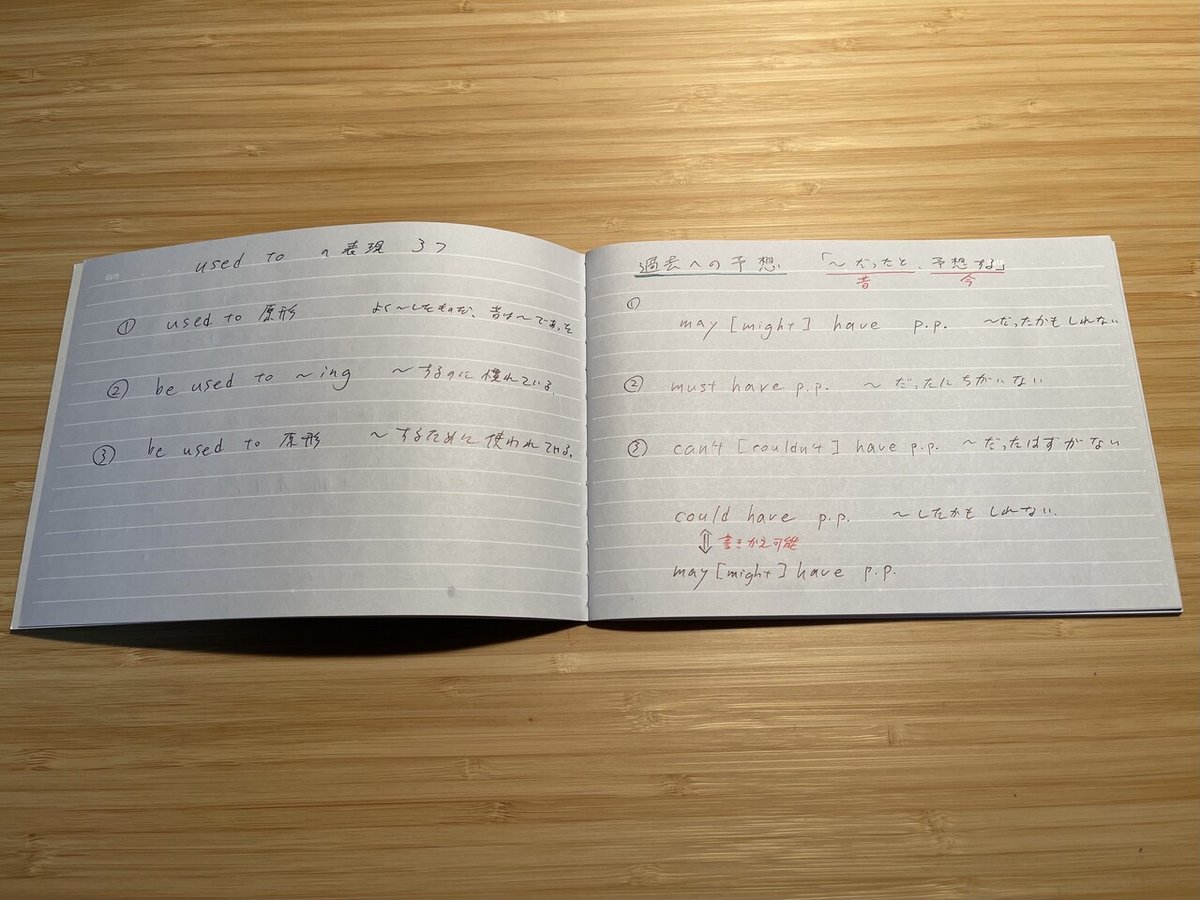 used to の表現 3つ
① used to 原形 よく〜したものだ、昔は〜であった
② be used to 〜ing 〜するのに慣れている.
③ be used to 原形 〜するために使われている.
過去への予想 「〜だったと、予想する」
昔 今
①
may [might] have p.p. 〜だったかもしれない
② must have p.p. 〜だったにちがいない
③ can't [couldn't] have p.p. 〜だったはずがない
could have p.p. 〜したかもしれない.
⇕ 書きかえ可能
may [might] have p.p.